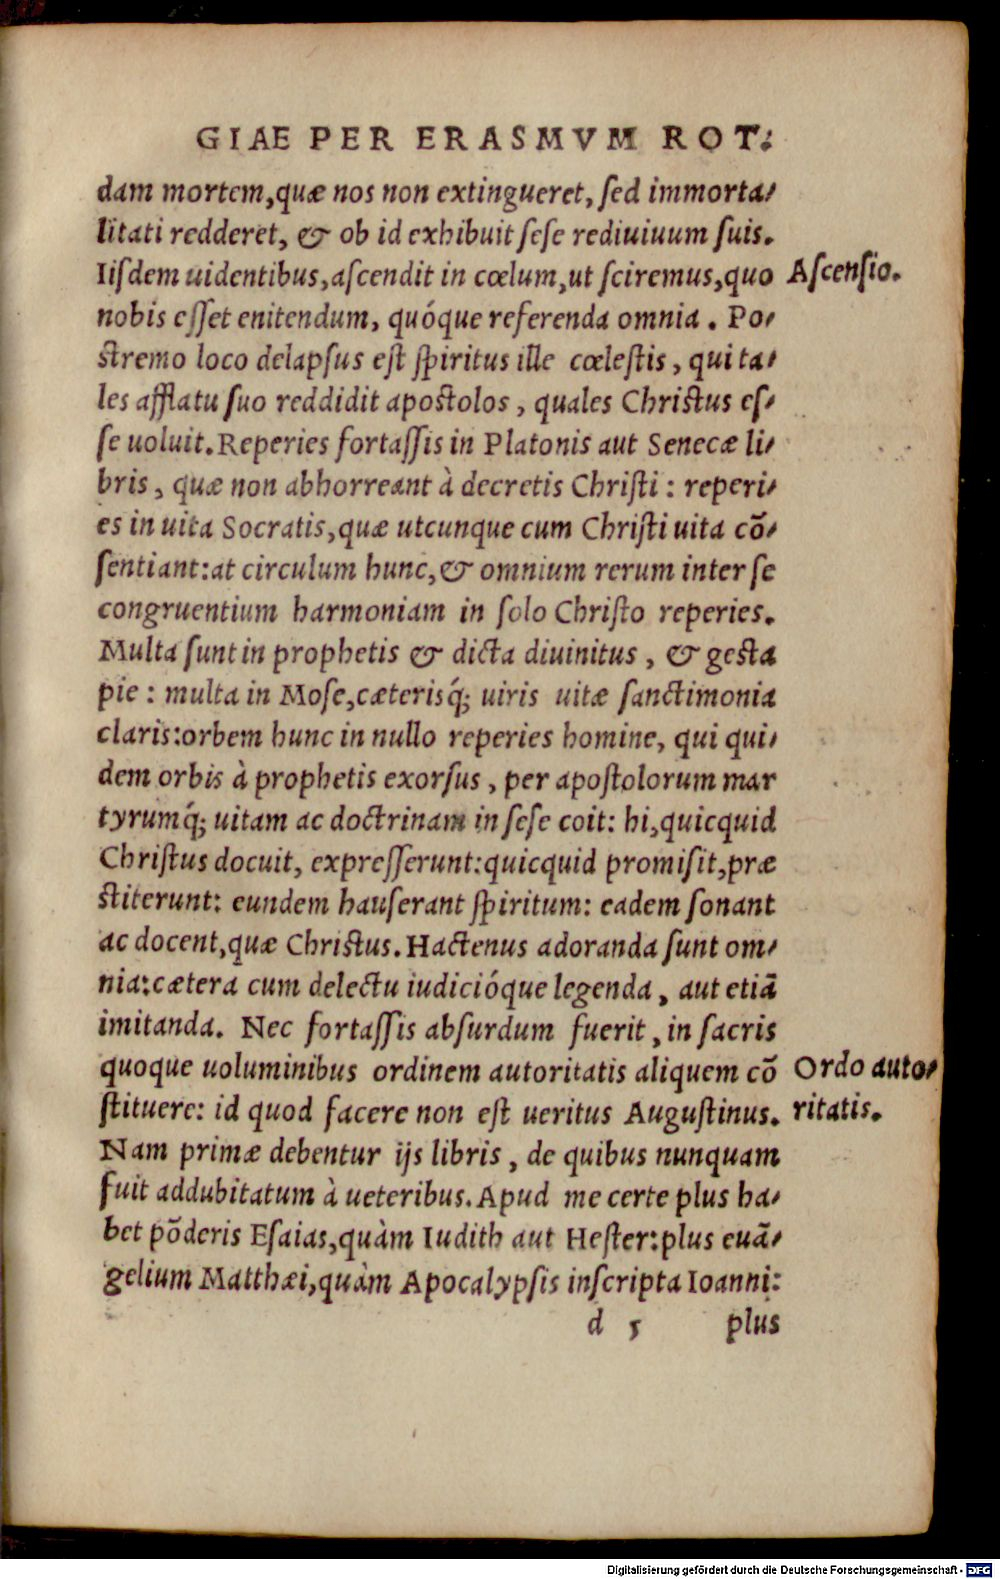 GIAE PER ERASMVM ROT.
dam mortem, quæ nos non extingueret, ſed immorta-
litati redderet, & ob id exhibuit ſeſe rediuiuum ſuis.
Iiſdem uidentibus, aſcendit in cœlum, ut ſciremus, quo
Aſcenſio.
nobis eſſet enitendum, quóque referenda omnia. Po-
ſtremo loco delapſus eſt ſpiritus ille cœleſtis, qui ta-
les afflatu ſuo reddidit apoſtolos, quales Chriſtus eſ-
ſe uoluit. Reperies fortaſſis in Platonis aut Senecæ li-
bris, quæ non abhorreant à decretis Chriſti: reperi-
es in uita Socratis, quæ utcunque cum Chriſti uita cō-
ſentiant: at circulum hunc, & omnium rerum inter ſe
congruentium harmoniam in ſolo Chriſto reperies.
Multa ſunt in prophetis & dicta diuinitus, & geſta
pie: multa in Moſe, cæterisq́; uiris uitæ ſanctimonia
claris: orbem hunc in nullo reperies homine, qui qui-
dem orbis à prophetis exorſus, per apoſtolorum mar
tyrumq́; uitam ac doctrinam in ſeſe coit: hi, quicquid
Chriſtus docuit, expreſſerunt: quicquid promiſit, præ
ſtiterunt: eundem hauſerant ſpiritum: eadem ſonant
ac docent, quæ Chriſtus. Hactenus adoranda ſunt om-
nia: cætera cum delectu iudicióque legenda, aut etiā
imitanda. Nec fortaſſis abſurdum fuerit, in ſacris
quoque uoluminibus ordinem autoritatis aliquem cō
Ordo auto-
ſtituere: id quod facere non eſt ueritus Auguſtinus.
ritatis.
Nam primæ debentur ijs libris, de quibus nunquam
fuit addubitatum à ueteribus. Apud me certe plus ha-
bet pōderis Eſaias, quàm Iudith aut Heſter: plus euā-
gelium Matthæi, quàm Apocalypſis inſcripta Ioanni:
d 5 plus
Digitalisierung gefördert durch die Deutsche Forschungsgemeinschaft - DFG